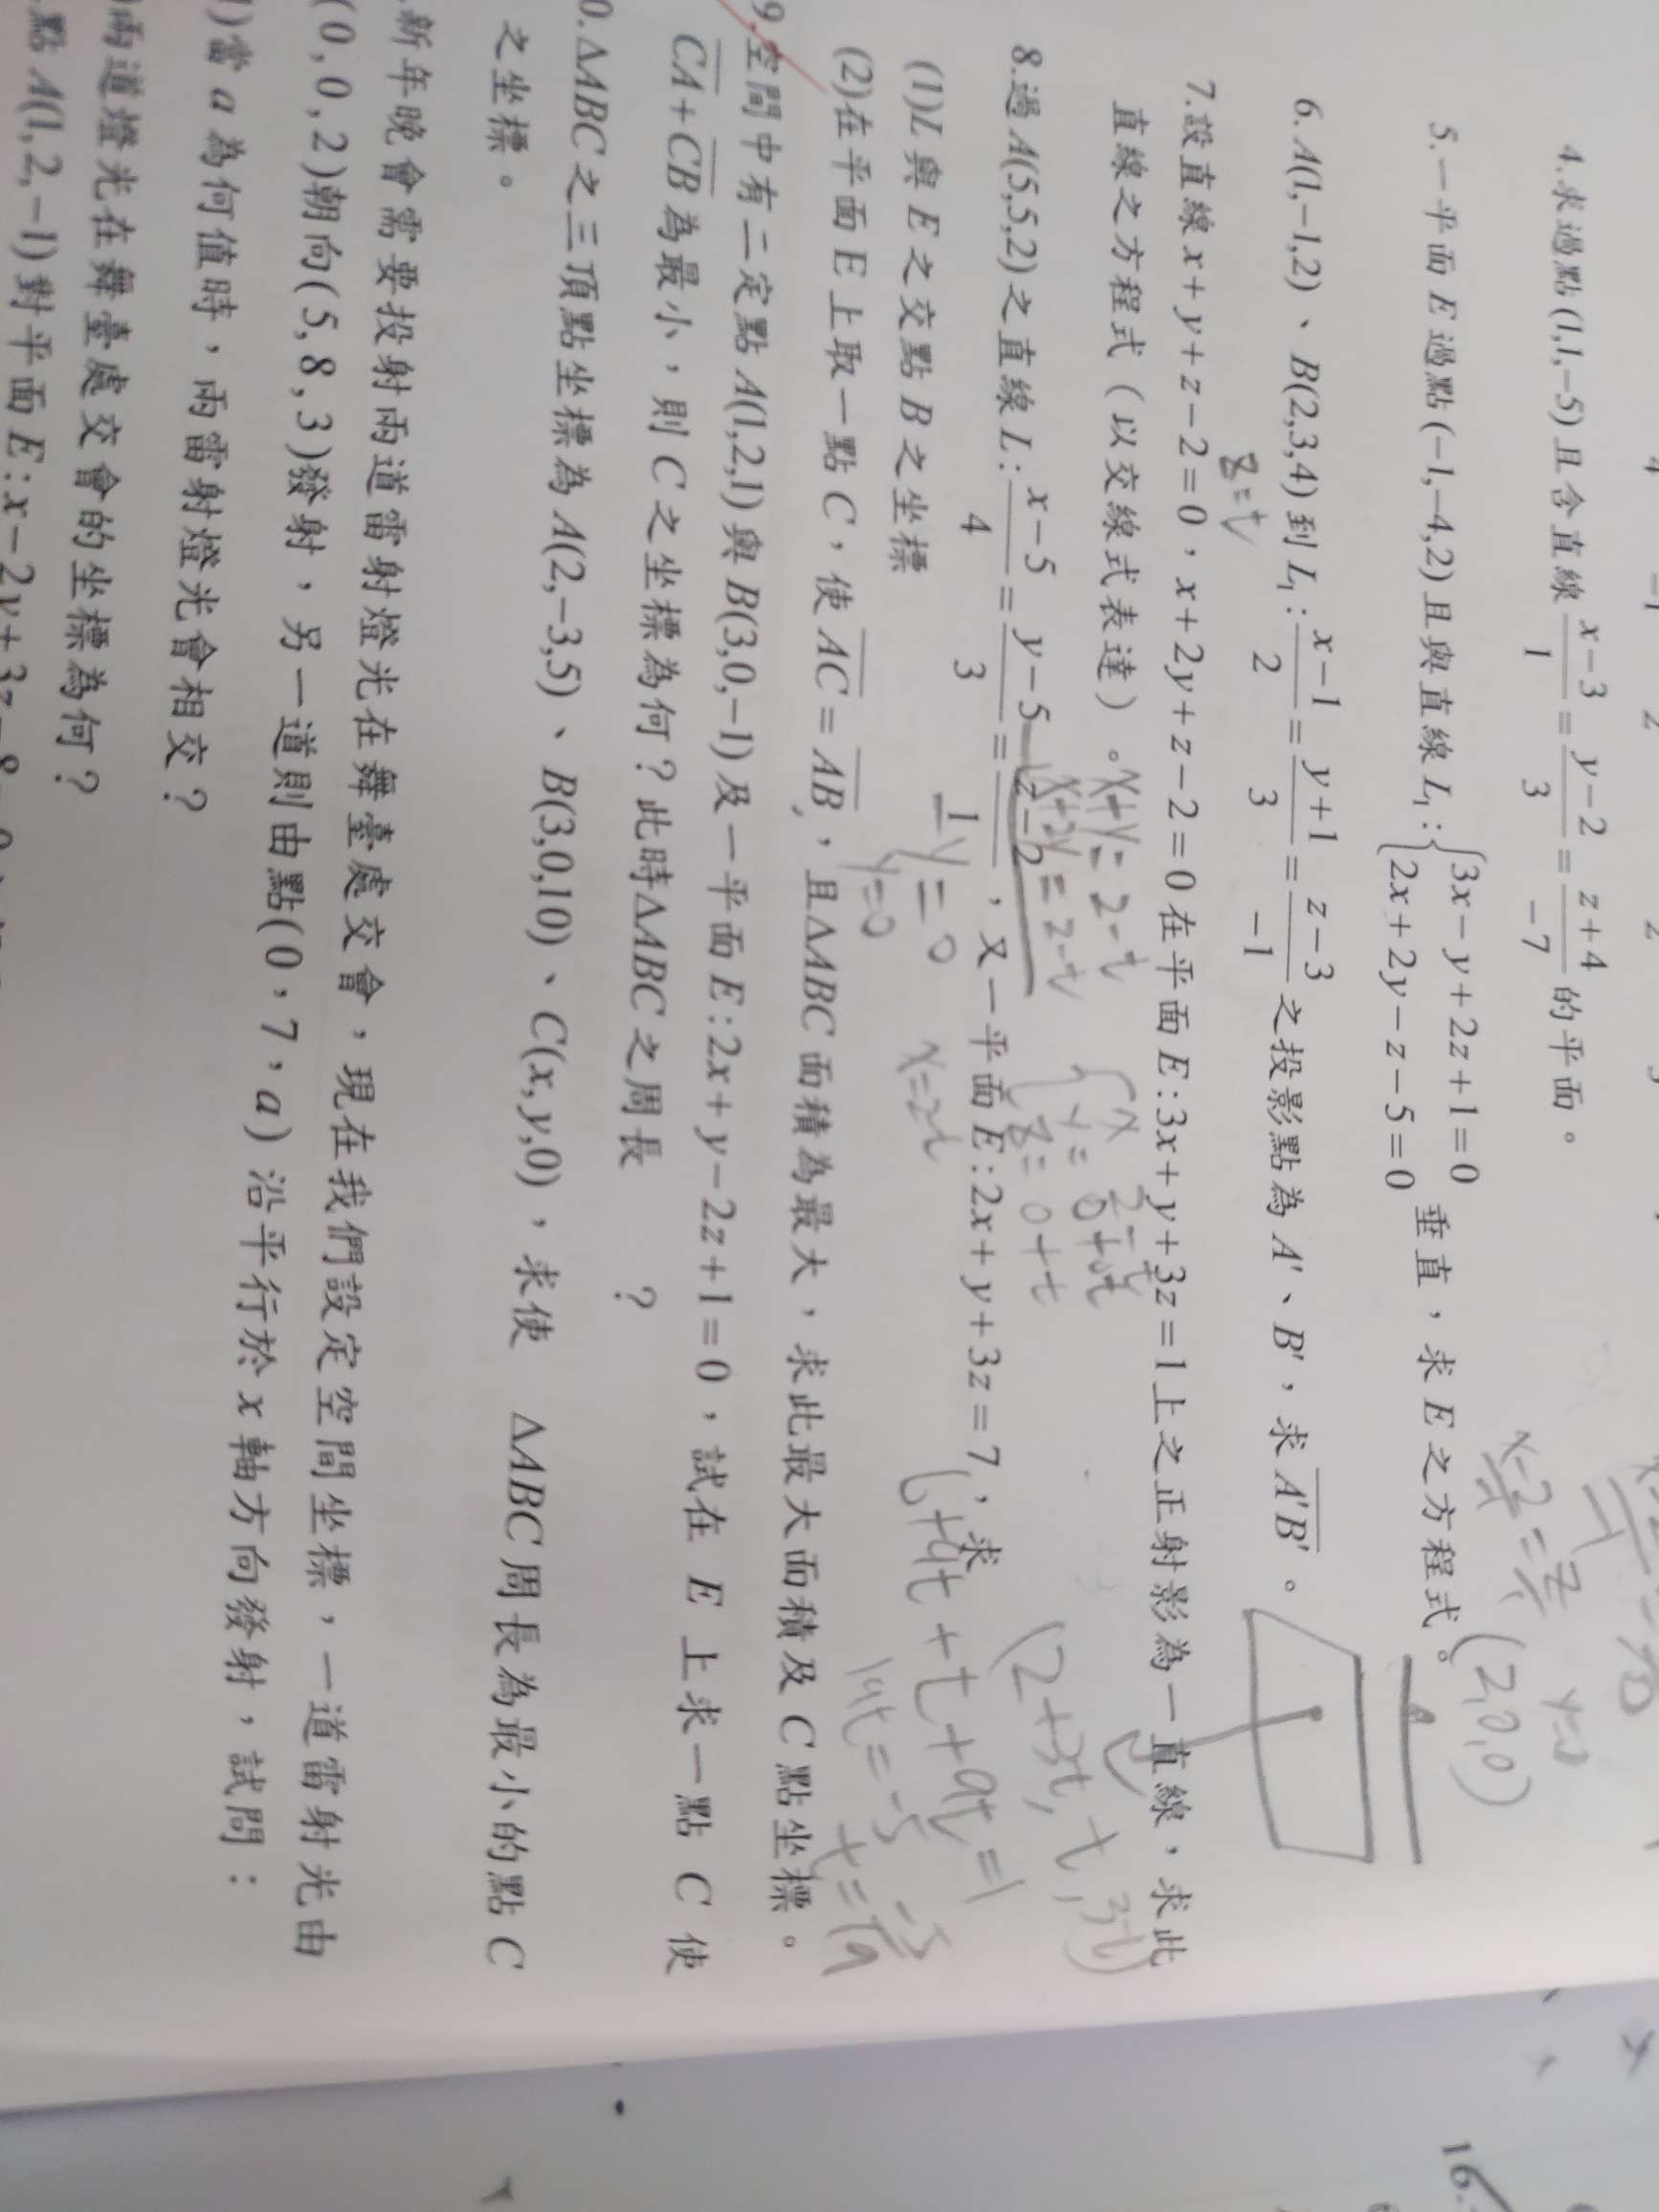 4.求過點(1,1,−5)且含直線 (x−3)/1 = (y−2)/3 = (z+4)/−7 的平面。
5.一平面 E 過點(−1,−4,2)且與直線 L₁:{3x−y+2z+1=0 2x+2y−z−5=0 垂直,求 E 之方程式。
6.A(1,−1,2)、B(2,3,4)到 L₁:(x−1)/2 = (y+1)/3 = (z−3)/−1 之投影點為 A'、B',求 A'B'。
7.設直線 x+y+z−2=0,x+2y+z−2=0 在平面 E:3x+y+3z=1 上之正射影為一直線,求此
直線之方程式(以交線式表達)。
8.過 A(5,5,2)之直線 L:(x−5)/4 = (y−5)/3 = (z−2)/1,又一平面 E:2x+y+3z=7,求
(1)L 與 E 之交點 B 之坐標
(2)在平面 E 上取一點 C,使 AC = AB,且ΔABC 面積為最大,求此最大面積及 C 點坐標。
9.空間中有二定點 A(1,2,1)與 B(3,0,−1)及一平面 E:2x+y−2z+1=0,試在 E 上求一點 C 使
CA+CB 為最小,則 C 之坐標為何?此時ΔABC 之周長 ?
0.ΔABC 之三頂點坐標為 A(2,−3,5)、B(3,0,10)、C(x,y,0),求使 ΔABC 周長為最小的點 C
之坐標。
.新年晚會需要投射兩道雷射燈光在舞臺處交會,現在我們設定空間坐標,一道雷射光由
(0,0,2)朝向(5,8,3)發射,另一道則由點(0,7,a)沿平行於 x 軸方向發射,試問:
)當 a 為何值時,兩雷射燈光會相交?
兩道燈光在舞臺處交會的坐標為何?
點 A(1,2,−1)對平面 E:x−2y+3z−8
z=t
x+y=2−t
x+2y=2−t
−y=0
y=0
x=2−t
{x 2−t
y=0+0t
z=0+t
y=0
(2,0,0)
(2+3t, t, 3t)
6+9t+t+9t=1
19t=−5
t=−5/19
16.